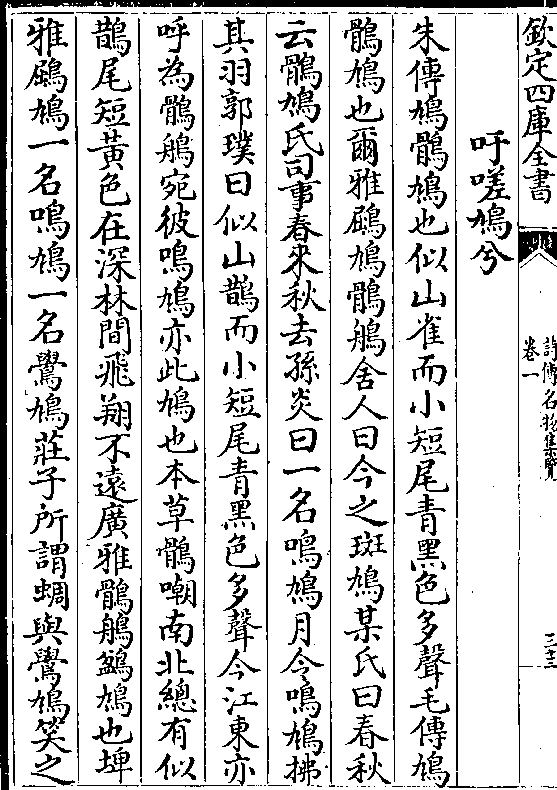 欽定四庫全書
詩傳名物集覽
卷一
三十三
吁嗟鳩兮
朱傳鳩鶻鳩也似山雀而小短尾青黑色多聲毛傳鳩
鶻鳩也爾雅鶌鳩鶻鵃舍人曰今之斑鳩某氏曰春秋
云鶻鳩氏司事春來秋去孫炎曰一名鳴鳩月令鳴鳩拂
其羽郭璞曰似山鵲而小短尾青黑色多聲今江東亦
呼為鶻鵃宛彼鳴鳩亦此鳩也本草鶻嘲南北總有似
鵲尾短黃色在深林間飛翔不遠廣雅鶻鵃鷦鳩也埤
雅鶌鳩一名鳴鳩一名鷽鳩莊子所謂蜩與鷽鳩笑之